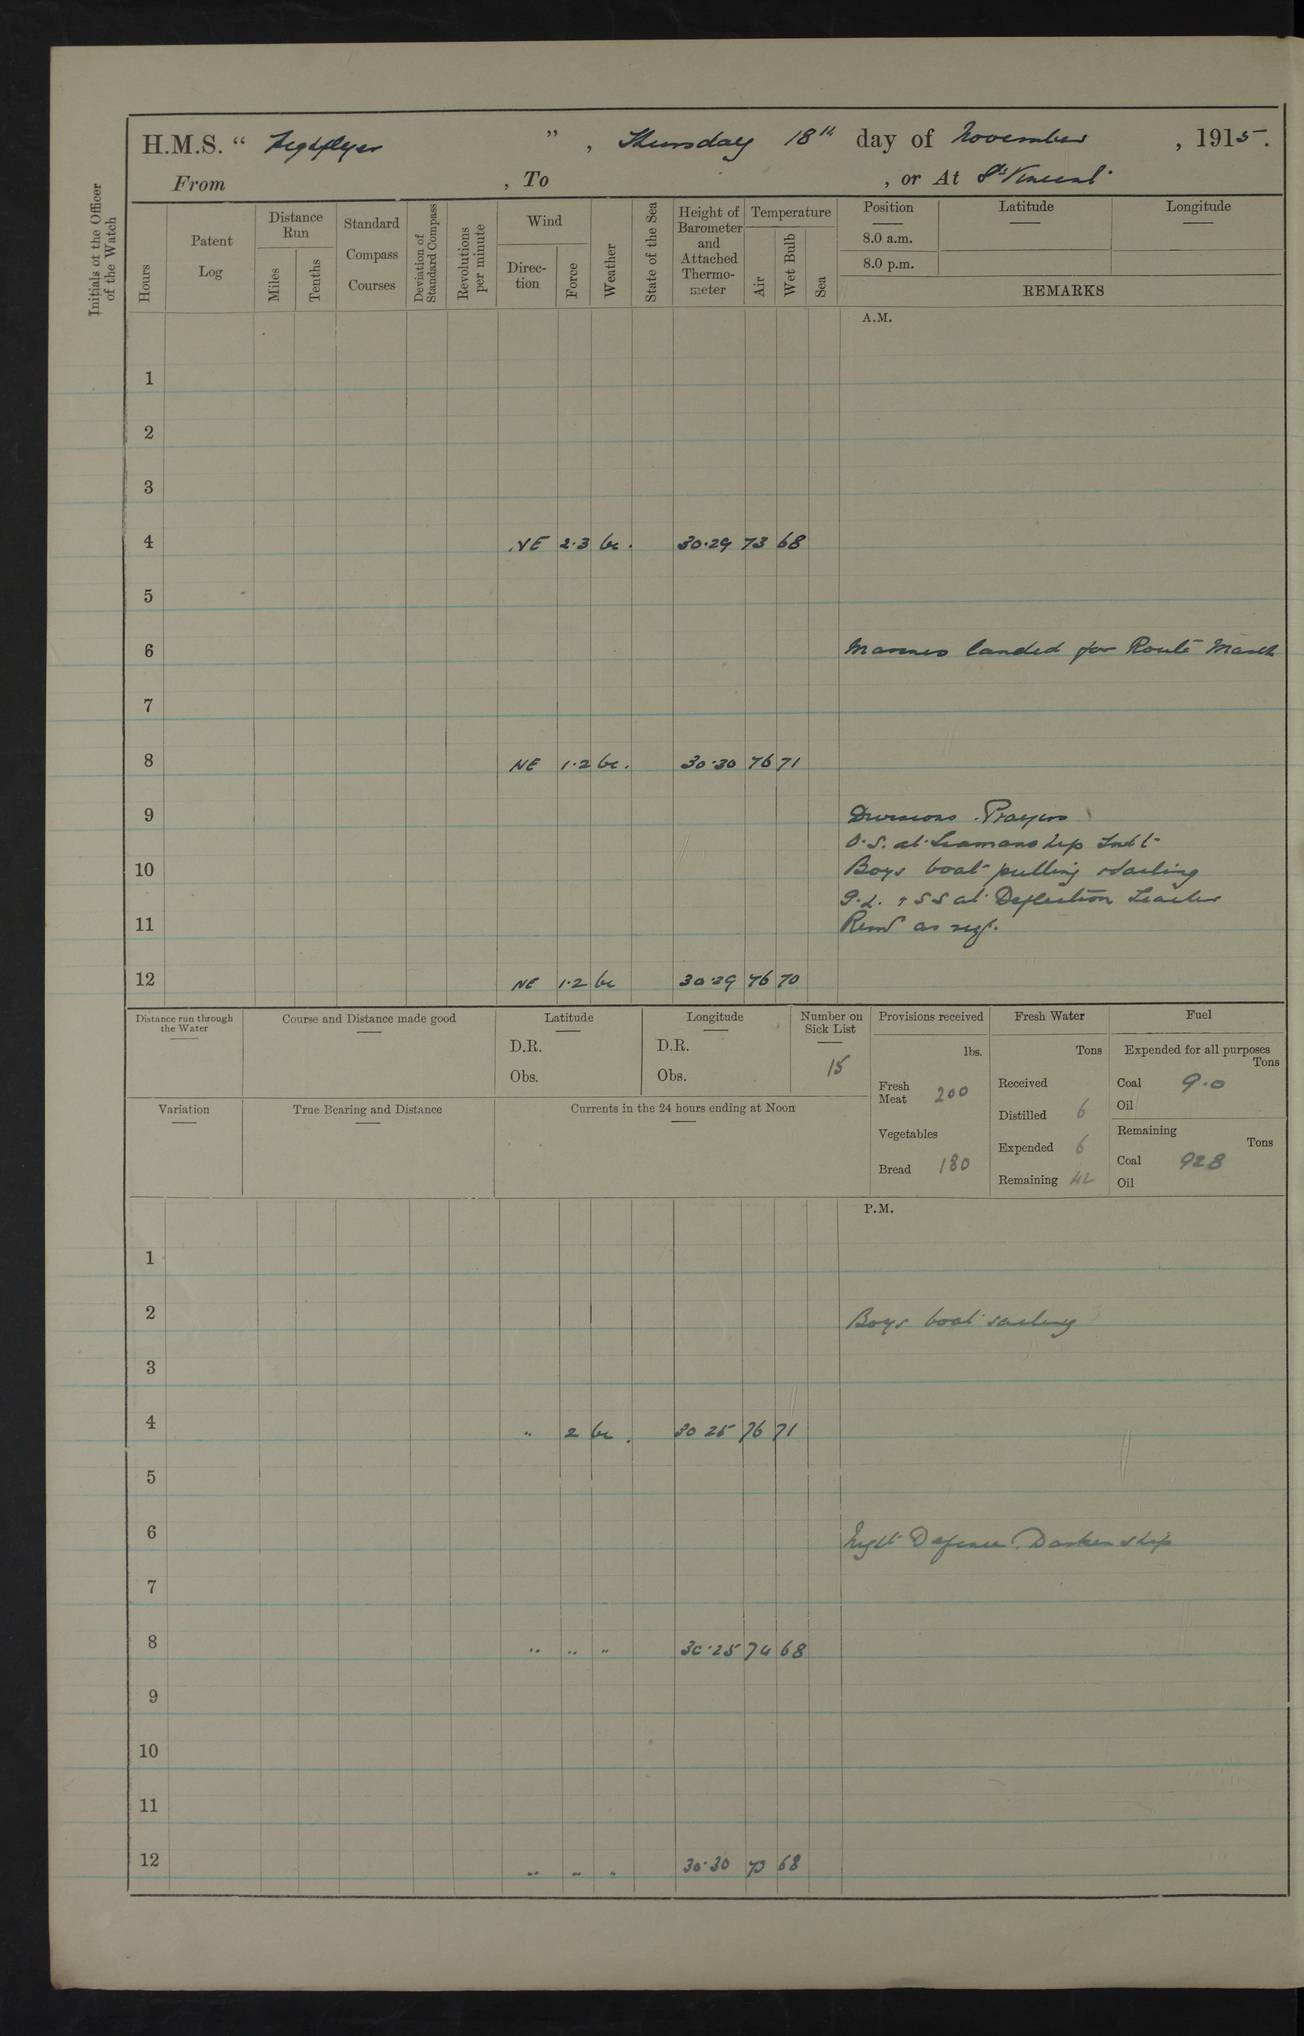 H.M.S. " Highflyer ", Thursday 18th day of November, 1915.
From , To , or At St Vincent.
Initials of the Officer of the Watch
Hours
Patent Log
Distance Run
Miles
Tenths
Standard Compass Courses
Deviation of Standard Compass
Revolutions per minute
Wind
Direction
Force
Weather
State of the Sea
Height of Barometer and Attached Thermometer
Temperature
Air
Wet Bulb
Sea
Position
Latitude
Longitude
8.0 a.m.
8.0 p.m.
REMARKS
A.M.
1
2
3
4 NE 2.3 bc. 30.29 73 68
5
6 Marines landed for Route March
7
8 NE 1.2 bc. 30.30 76 71
9 Divisions. Prayers
O.S. at Seamanship Inst
10 Boys boat pulling & sailing
G.L. & SS at Deflection Teacher
11 Remr as req.
12 NE 1.2 bc 30.29 76 70
Distance run through the Water
Course and Distance made good
Latitude
D.R.
Obs.
Longitude
D.R.
Obs.
Number on Sick List
15
Provisions received
lbs.
Fresh Meat 200
Vegetables
Bread 180
Fresh Water
Tons
Received
Distilled 6
Expended 6
Remaining 42
Fuel
Expended for all purposes
Tons
Coal 9.0
Oil
Remaining
Tons
Coal 928
Oil
Variation
True Bearing and Distance
Currents in the 24 hours ending at Noon
P.M.
1
2 Boys boat sailing
3
4 " 2 bc. 30 25 76 71
5
6 Night Defence. Darken ship
7
8 " " " 30.25 74 68
9
10
11
12 " " " 30.30 73 68